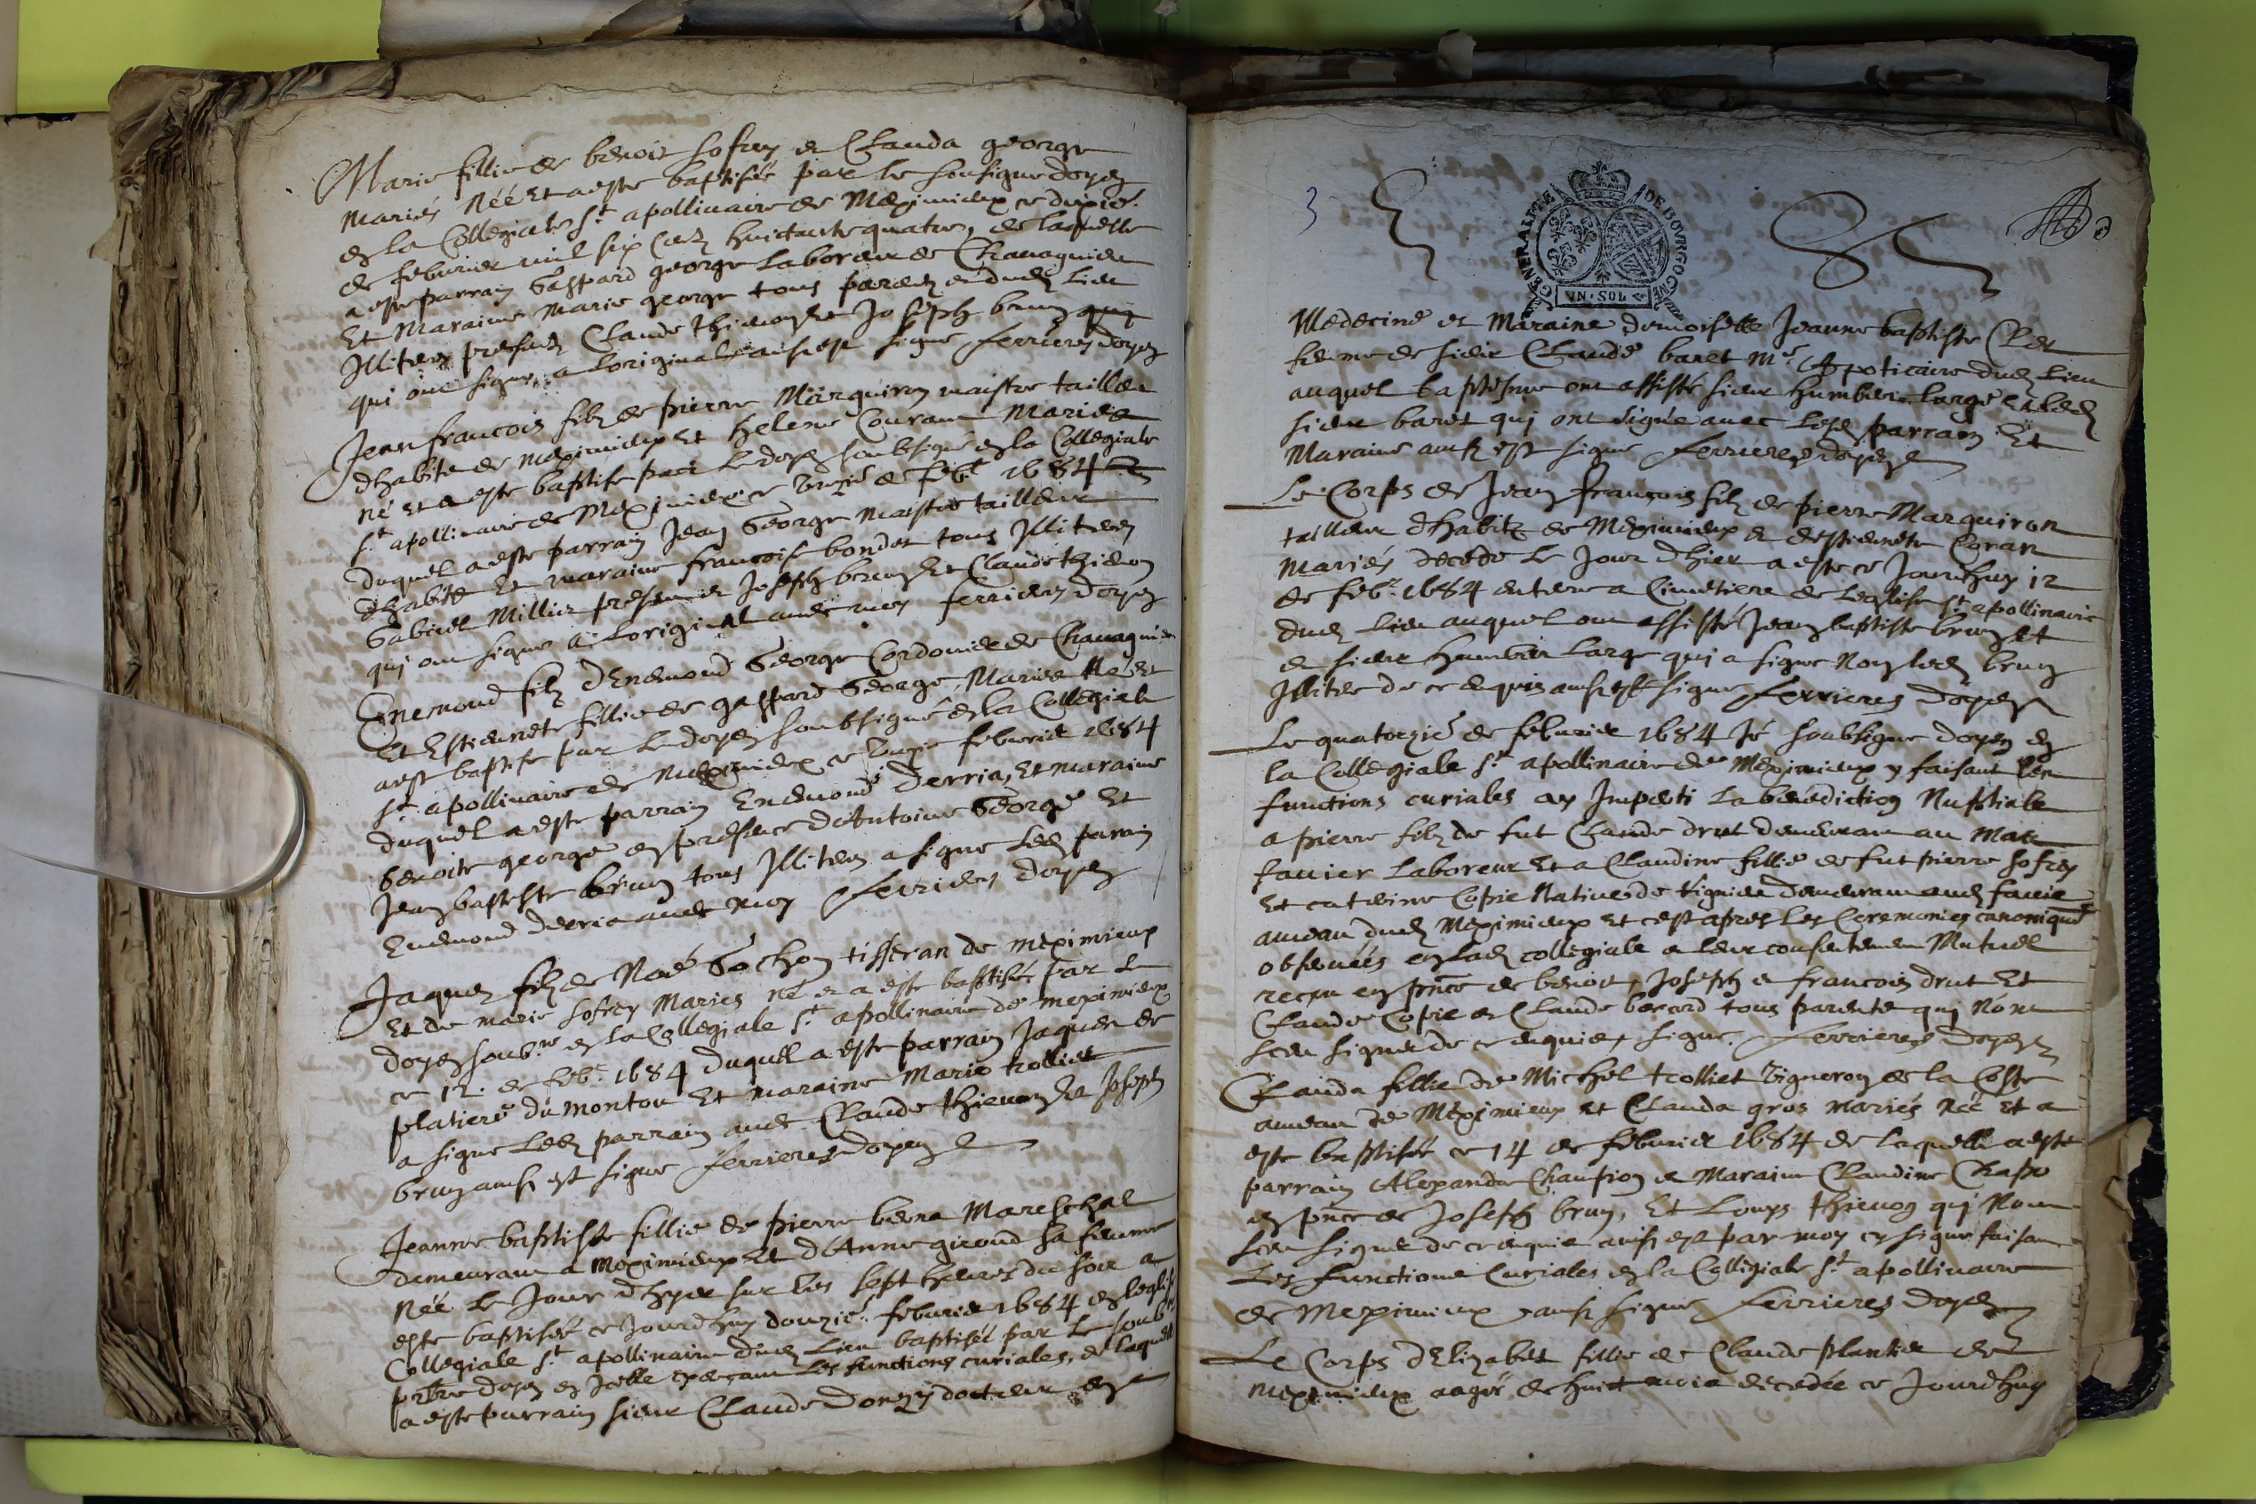 Marie fillie de benoit sofrey et Clauda george
Mariés Née Et a este baptisée par le sousigne doyen
en la Collegiale St apollinaire de Meximieux ce dixie.
de feburier mil six Cens huictante quatre, de laquelle
a este parrain Gaspard george Laboreur de Chavagnieu
Et Maraine Marie george tous parens dudit Lieu
Illiteres presens Claude thievon et Joseph brun
qui ont signe a Loriginal ainsi est signe ferrieres doyen
Jean francois filz de pierre Marquiron maistre tailleur
dhabits de Meximieux Et helene Couran Maries
né et a este baptise par Le doyen soubsigne en la Collegiale
St apollinaire de Meximieux ce de feb. 1684
duquel a este parrain Jean George maistre tailleur
dhabits Et maraine francoise bondet tous Illiteres
Gabriel Millier presens et Joseph brun Et Claude thievon
qui ont signe a Loriginal avec moy ferrieres doyen
Enemond filz dEnemond George Cordonier de Chavagnieu
Et Estiennete fillie de gaspard George, Maries Né et
a este baptise par Le doyen soubsigné en la Collegiale
St apollinaire de Meximieux ce feburier 1684
duquel a este parrain Enemond Derria, Et maraine
benoite george en presence dAntoine George Et
Jean baptiste brun tous Illiteres a signe Ledit parrain
Enemond derria avec moy ferrieres doyen
Jaques filz de Noé Gochon tisseran de meximieux
Et de marie sofrey Maries né et a este baptisée par Le
doyen soub.ne en la Collegiale St apollinaire de meximieux
ce 12. de feb. 1684 duquel a este parrain Jaques de
platiere du montou Et maraine Marie trolliet
a signe Ledit parrain avec Claude thievon et Joseph
brun ainsi est signe ferrieres doyen
Jeanne baptiste fillie de pierre berna Mareschal
demeurant a Meximieux Et dAnne giroud sa femme
Née Le Jour dhyer sur Les sept heures du soir a
este baptisée ce Jourdhuy douzie. feburier 1684 en leglise
Collegiale St apollinaire dudit Lieu baptisée par Le soub
pbre doyen en Icelle exercant Les functions curiales, de Laquelle
a este parrain sieur Claude donzy docteur en
3
GENERALITE DE BOVRGOGNE
VN·SOL
Medecine et Maraine demoiselle Jeanne baptiste Clet
femme de sieur Claude baret Me Apoticaire dudit Lieu
auquel baptesme ont assisté sieur humbert large et Ledit
sieur baret qui ont signée avec Lesdits parrain Et
Maraine ainsi est signe ferrieres doyen
Le Corps de Jean francois filz de pierre Marquiron
tailleur dhabitz de Meximieux et destiennete Coran
Mariés décédé Le Jour dhier a este ce Jourdhuy 12
de feb. 1684 enterre a Cimetiere de Leglise St apollinaire
dudit Lieu auquel ont assisté Jean baptiste brun Et
et sieur humbert Large qui a signe Non Ledit brun
Illitere de ce enquis ainsi est signe ferrieres doyen
Le quatorzie de feburier 1684 Je soubsigne doyen en
la Collegiale St apollinaire de Meximieux y faisant Les
functions curiales ay Imparti La bénédiction Nuptiale
a pierre filz de fut Claude drut demeurant au Mas
favier Laboreur Et a Claudine fillie de fut pierre sofrey
Et caterine Copie Natives de tignieu demeurant audit favier
ameau dudit Meximieux et cest apres Les Ceremonies canoniques
observées en Ladite collegiale a leur consentement Mutuel
receu en pnce de benoit, Joseph et francois drut Et
Claude Copie et Claude berard tous parents qui Nont
sceu signer de ce enquis, signe. ferrieres doyen
Clauda fillie de Michel trolliet Vigneron de la Coste
ameau de Meximieux et Clauda gros mariés Née Et a
este baptisée ce 14 de feburier 1684 de laquelle a este
parrain Alexandre Champion et Maraine Claudine Chapo
en pnce de Joseph brun, Et Louys thievon qui Nont
sceu signer de ce enquis ainsi est par moy cy signe faisant
Les functions Curiales en la Collegiale St apollinaire
de Meximieux ainsi signe ferrieres doyen
Le Corps dElizabet fillie de Claude plantier de
meximieux aagée de huit mois decedée ce Jourdhuy